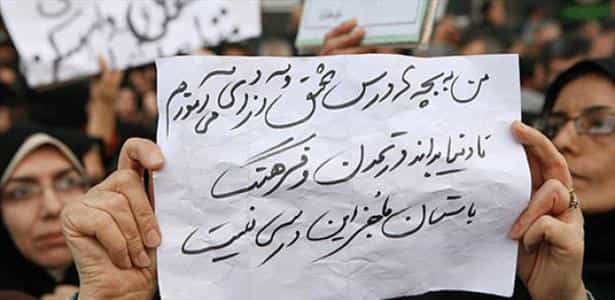 من به بچه ها درس عشق و آزادی می آموزم
تا دنیا بداند در تمدن و فرهنگ
باستان ما جز این درسی نیست